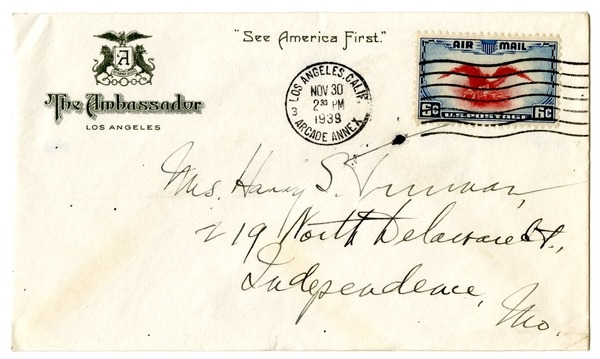 "See America First."
A
The Ambassador
LOS ANGELES
LOS ANGELES, CALIF.
NOV 30
2 30 PM
1939
3
ARCADE ANNEX
AIR MAIL
6c 6c
U.S. POSTAGE
Mrs. Harry S. Truman,
219 North Delaware St.,
Independence,
Mo.